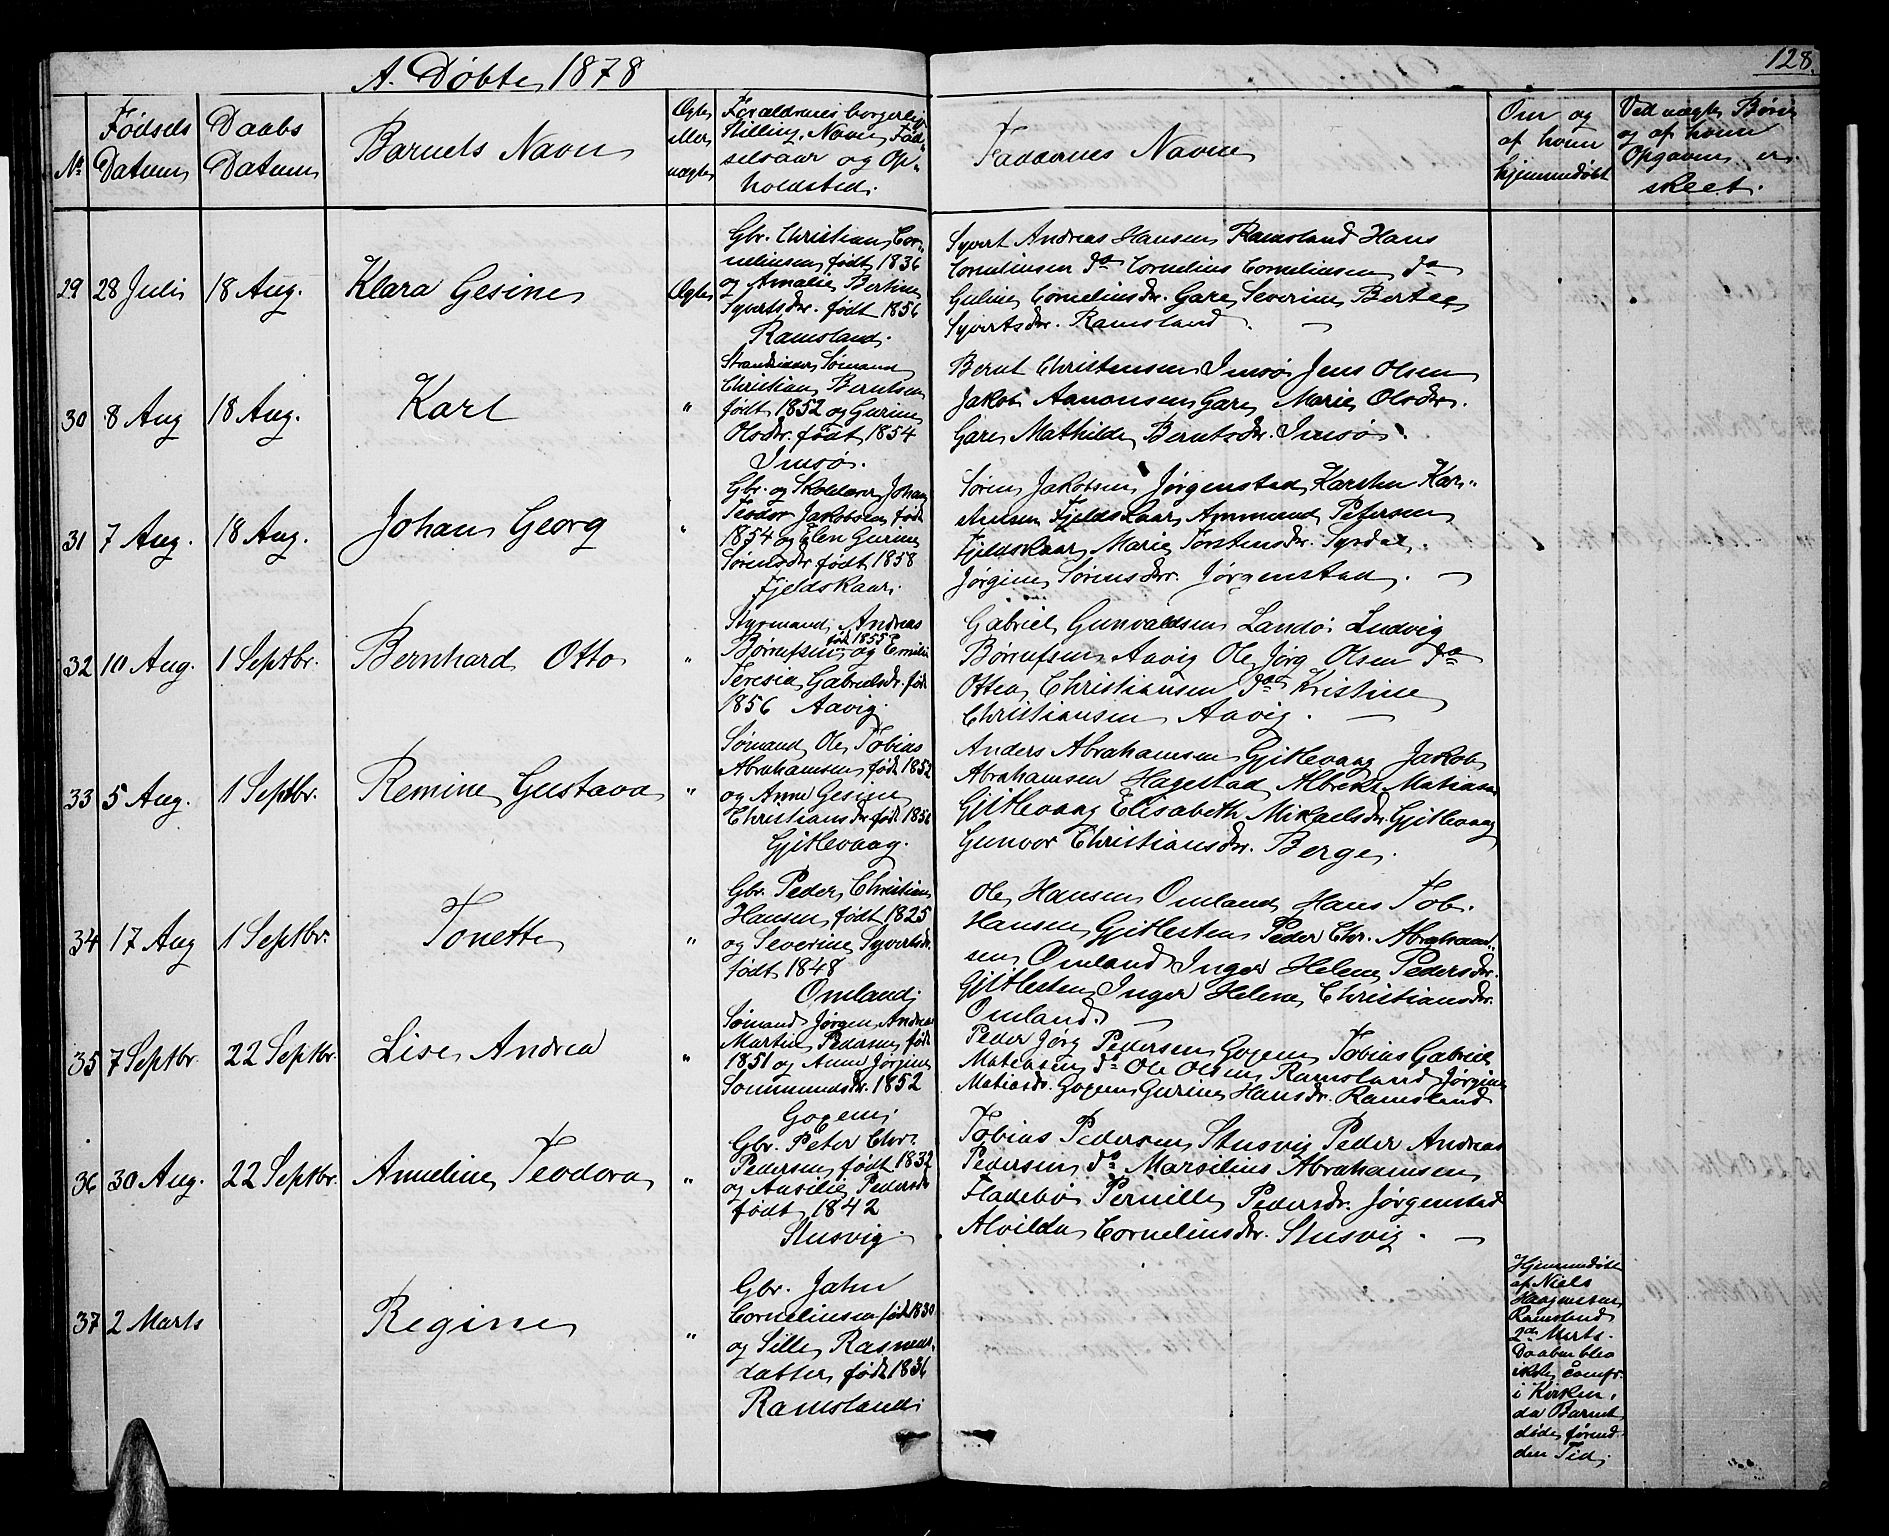 A. Døbte 1878
128.
No
Fødsels Datum
Daabs Datum
Barnets Navn
Ægte eller uægte
Forældrenes borgerlig
Stilling, Navn, Fød-
selsaar og Op-
holdsted.
Faddernes Navne
Om og
af hvem
hjemmedøbt
Ved uægte Børn
og af hvem
Opgaven er
skeet.
29 28 Juli 18 Aug. Klara Gesine Ægte
Gbr. Christian Cor-
neliusen født 1836
og Amalie Bertine
Syvertsdr. født 1856
Ramsland.
Syvert Andreas Hansen Ramsland Hans
Corneliusen do Cornelius Corneliusen do
Guline Corneliusdr. Gare Severine Bertea
Syvertsdr. Ramsland.
30 8 Aug 18 Aug. Karl "
Strandsidder Sømand
Christian Berntsen
født 1852 og Gurine
Olsdr. født 1854
Imsø.
Bernt Christensen Imsø Jens Olsen
Jakob Aanonsen Gare Marie Olsdr.
Gare Mathilde Berntsdr. Imsø.
31 7 Aug. 18 Aug. Johan Georg "
Gbr. og Skolelærer Johan
Teodor Jakobsen født
1854 og Elen Gurine
Sørensdr født 1858
Fjeldskaar.
Søren Jakobsen Jørgenstad Karsten Kar-
stensen Fjeldskaar Ammund Petersen
Fjeldskaar Marie Torstensdr. Syrdal.
Jørgine Sørensdr. Jørgenstad.
32 10 Aug. 1 Septbr. Bernhard Otto "
Styrmand Andreas
Børrufsen født 1855 og Emilie
Teresia Gabrielsdr. født
1856 Aavig.
Gabriel Gunvaldsen Landø Ludvig
Børrufsen Aavig Ole Jørg Olsen do
Ottea Christiansen do Kristine
Christiansen Aavig.
33 5 Aug. 1 Septbr. Remine Gustava "
Sømand Ole Tobias
Abrahamsen født 1852
og Anne Gesine
Christiansdr født 1856
Gjitlevaag.
Anders Abrahamsen Gjitlevaag Jakob
Abrahamsen Hagestad Albrekt Matiasen
Gjitlevaag Elisabeth Mikaelsdr. Gjitlevaag
Gunvor Christiansdr. Berge.
34 17 Aug 1 Septbr. Tonette "
Gbr. Peder Christian
Hansen født 1825
og Severine Syvertsdr.
født 1848
Omland.
Ole Hansen Omland Hans Tob.
Hansen Gjitlesten Peder Chr. Abraham-
sen Omland Inger Helene Pedersdr.
Gjitlesten Inger Helene Christiansdr.
Omland.
35 7 Septbr. 22 Septbr. Lise Andrea "
Sømand Jørgen Andreas
Martin Pedersen født
1851 og Anne Jørgine
Sommundsdr. 1852
Gogem.
Peder Jørg Pedersen Gogem Tobias Gabriel
Matiasen do Ole Olsen Ramsland Jørgine
Matiasdr. Gogem Gurine Hansdr. Ramsland
36 30 Aug. 22 Septbr. Anneline Teodora "
Gbr. Peter Chr.
Pedersen født 1832
og Ansilie Pedersdr
født 1842
Stusvig.
Tobias Pedersen Stusvig Peder Andreas
Pedersen do Marsilius Abrahamsen
Fladebø Pernille Pedersdr. Jørgenstad
Alvilda Corneliusdr. Stusvig.
37 2 Marts Regine "
Gbr. Jahn
Corneliusen født 1830
og Sille Rasmus-
datter født 1836
Ramsland.
Hjemmedøbt
af Niels
Haagensen
Ramsland
2de Marts.
Daaben blev
ikke comfr.
i Kirken,
da Barnet
døde førend
den Tid.